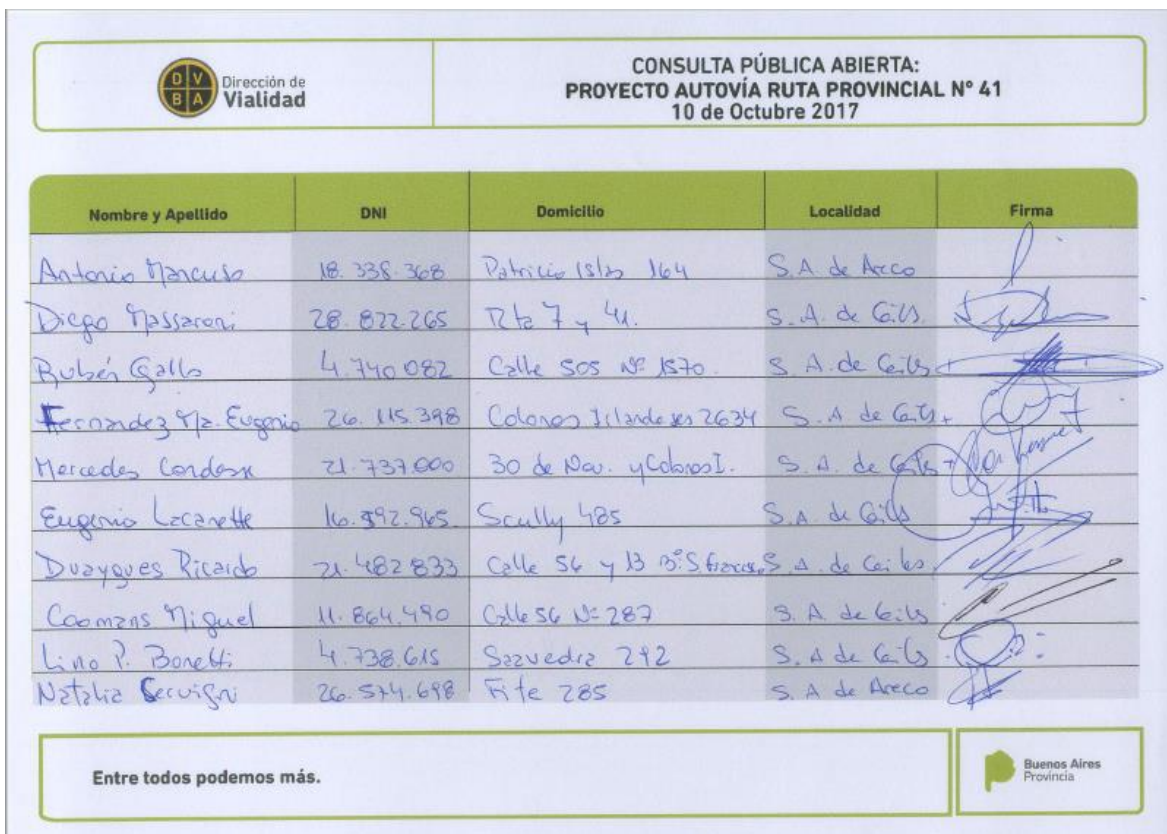 DV
BA
Dirección de
Vialidad
CONSULTA PÚBLICA ABIERTA:
PROYECTO AUTOVÍA RUTA PROVINCIAL Nº 41
10 de Octubre 2017
Nombre y Apellido DNI Domicilio Localidad Firma
Antonio Mancuso 18.338.368 Patricio Islas 164 S.A. de Areco
Diego Massaroni 28.822.265 Rta 7 y 41. S.A. de Giles
Rubén Gallo 4.740.082 Calle 505 Nº 1570. S.A. de Giles
Hernandez Ma. Eugenia 26.115.398 Colonos Irlandeses 2634 S.A. de Giles.
Mercedes 21.737.000 30 de Nov. y Colonos I. S.A. de Giles
Eugenio Lacanette 16.592.965 Scully 485 S.A. de Giles
Duaygues Ricardo 21.482.833 Calle 56 y 13 Bº S. S.A. de Giles.
Coomans Miguel 11.864.490 Calle 56 Nº 287 S.A. de Giles
Lino P. Bonetti 4.738.615 Saavedra 292 S.A. de Giles
Natalia Servigni 26.574.698 Fite 285 S.A de Areco
Entre todos podemos más.
Buenos Aires
Provincia